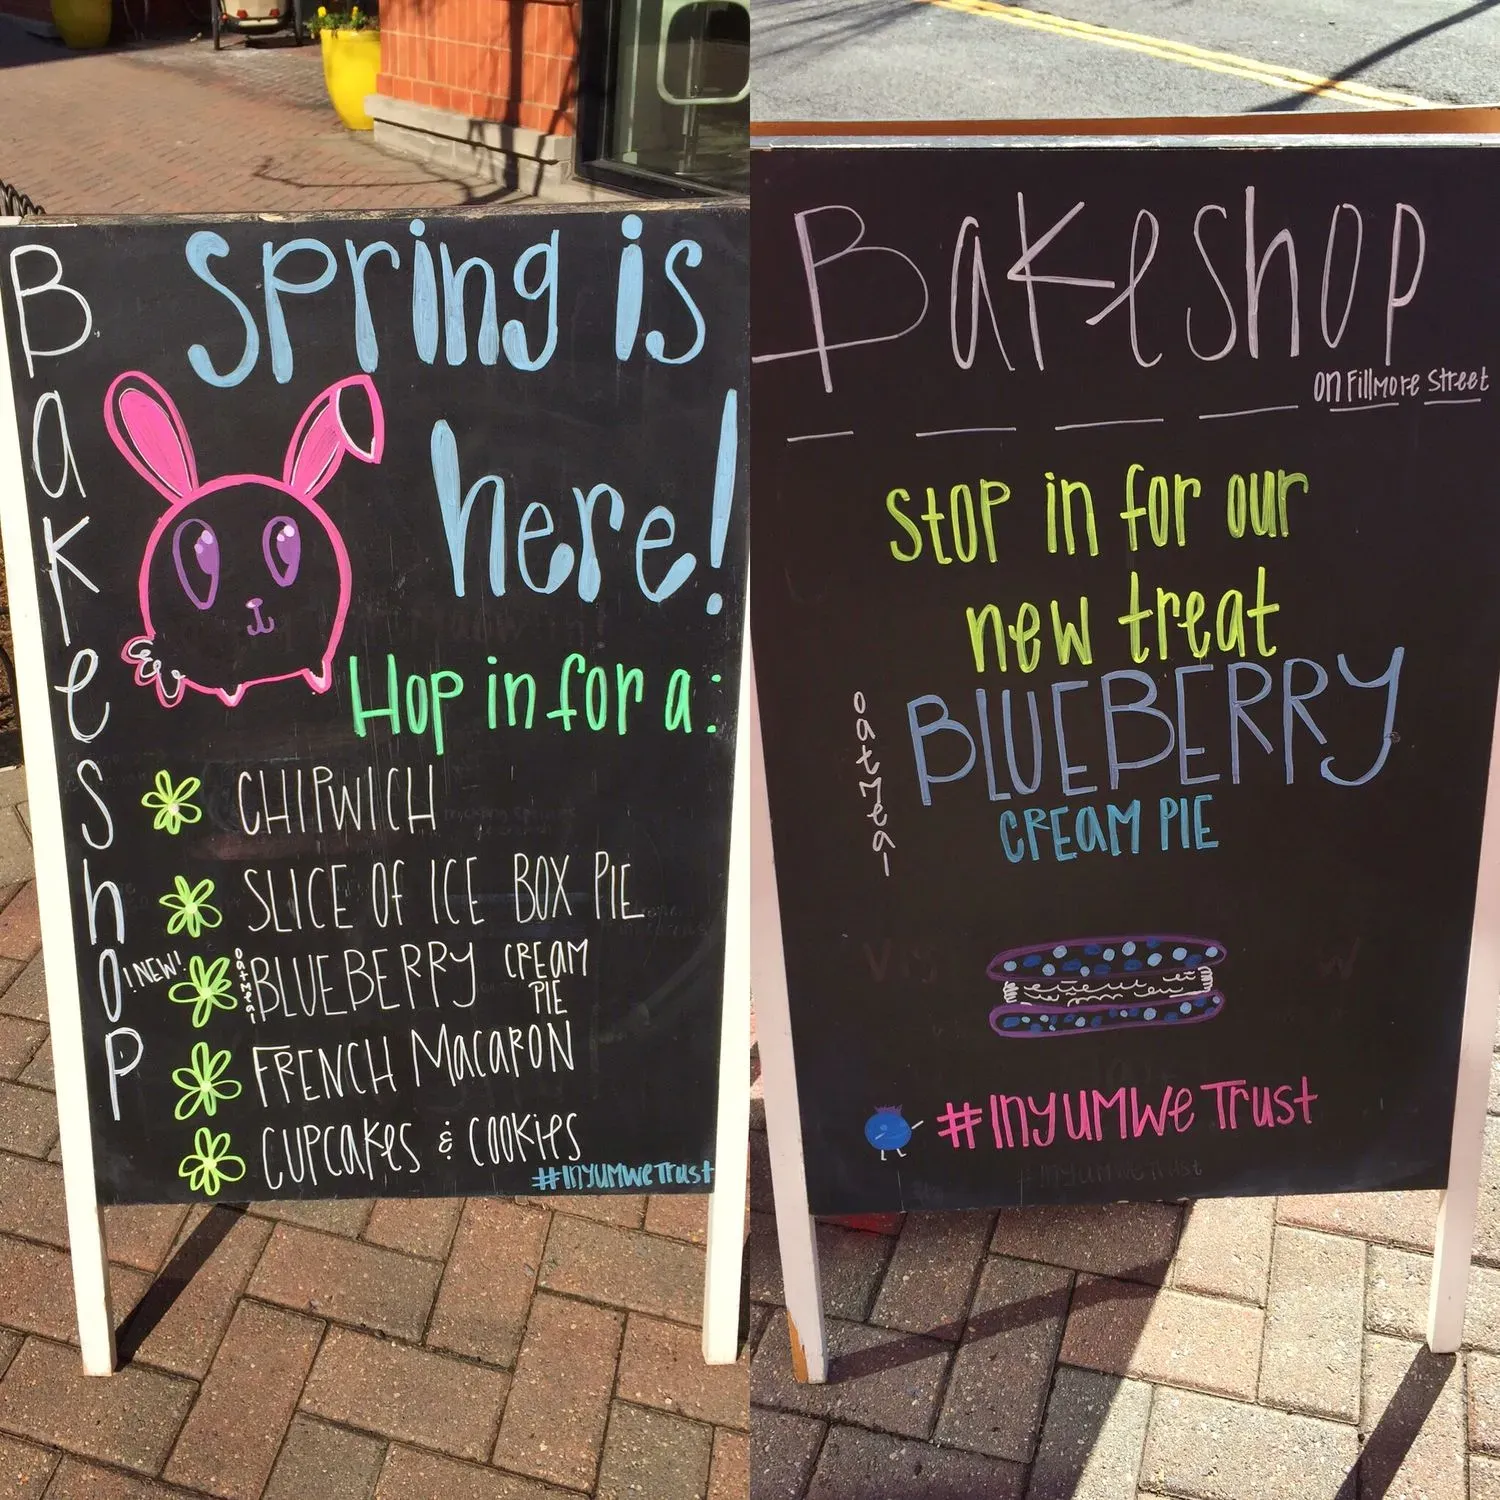 Bakeshop
spring is
here!
Hop in for a:
CHIPWICH
SLICE OF ICE BOX PIE
!NEW! oatmeal BLUEBERRY CREAM
PIE
FRENCH MACARON
CUPCAKES & COOKIES
#INYUMWETrust
Bakeshop
on Fillmore Street
Stop in for our
new treat
oatmeal BLUEBERRY
CREAM PIE
#INYUMWETrust
#INYUMWETrust